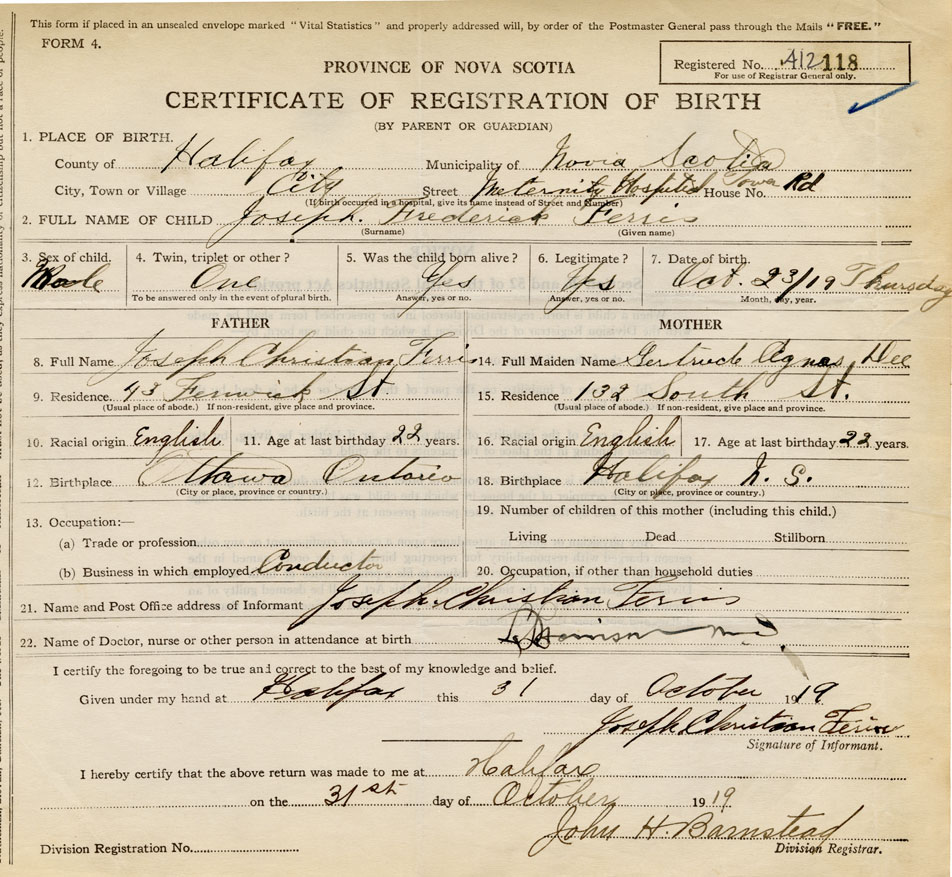 This form if placed in an unsealed envelope marked "Vital Statistics" and properly addressed will, by order of the Postmaster General pass through the Mails "FREE."
FORM 4.
Registered No. 412118
For use of Registrar General only.
PROVINCE OF NOVA SCOTIA
CERTIFICATE OF REGISTRATION OF BIRTH
(BY PARENT OR GUARDIAN)
1. PLACE OF BIRTH.
County of Halifax Municipality of Novia Scotia
City, Town or Village City Street Maternity Hospital House No. Tower Rd
(If birth occurred in a hospital, give its name instead of Street and Number)
2. FULL NAME OF CHILD Joseph. Frederick Ferris
(Surname) (Given name)
3. Sex of child. 4. Twin, triplet or other? 5. Was the child born alive? 6. Legitimate? 7. Date of birth.
Male One Yes Yes Oct. 23/19 Thursday
To be answered only in the event of plural birth. Answer, yes or no. Answer, yes or no. Month, day, year.
FATHER
8. Full Name Joseph Christian Ferris
9. Residence. 43 Fenwick St.
(Usual place of abode.) If non-resident, give place and province.
10. Racial origin English 11. Age at last birthday 22 years.
12. Birthplace Ottawa Ontario
(City or place, province or country.)
13. Occupation:—
(a) Trade or profession
(b) Business in which employed Conductor
MOTHER
14. Full Maiden Name Gertrude Agnes Dee
15. Residence 132 South St.
(Usual place of abode.) If non-resident, give place and province.
16. Racial origin English 17. Age at last birthday 22 years.
18. Birthplace Halifax N. S.
(City or place, province or country.)
19. Number of children of this mother (including this child.)
Living Dead Stillborn
20. Occupation, if other than household duties
21. Name and Post Office address of Informant Joseph. Christian Ferris
22. Name of Doctor, nurse or other person in attendance at birth. Morrison M D
I certify the foregoing to be true and correct to the best of my knowledge and belief.
Given under my hand at Halifax this 31 day of October 1919
Joseph Christian Ferris
Signature of Informant.
I hereby certify that the above return was made to me at Halifax
on the 31st day of October 1919
John H. Barnstead
Division Registration No. Division Registrar.